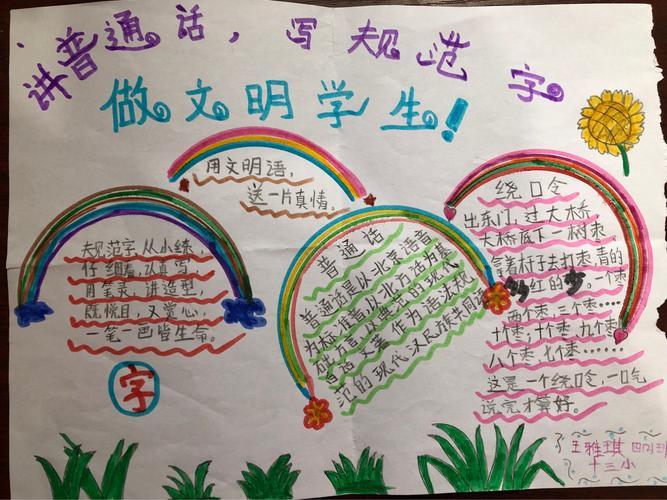 讲普通话，写规范字
做文明学生！
用文明语，
送一片真情。
规范字从小练，
仔细看，认真写，
用笔灵，讲造型，
既悦目，又赏心，
一笔一画皆生命。
字
普通话
普通话是以北京语音
为标准音，以北方话为基
础方言，以典范的现代
白话文著作为语法规
范的现代汉民族共同
绕口令
出东门，过大桥，
大桥底下一树枣
拿着杆子去打枣，青的
多，红的少。一个枣
两个枣，三个枣……
十个枣；十个枣，九个枣
八个枣，七个枣……
这是一个绕口令，一口气
说完才算好。
王雅琪 四(1)班
十三小